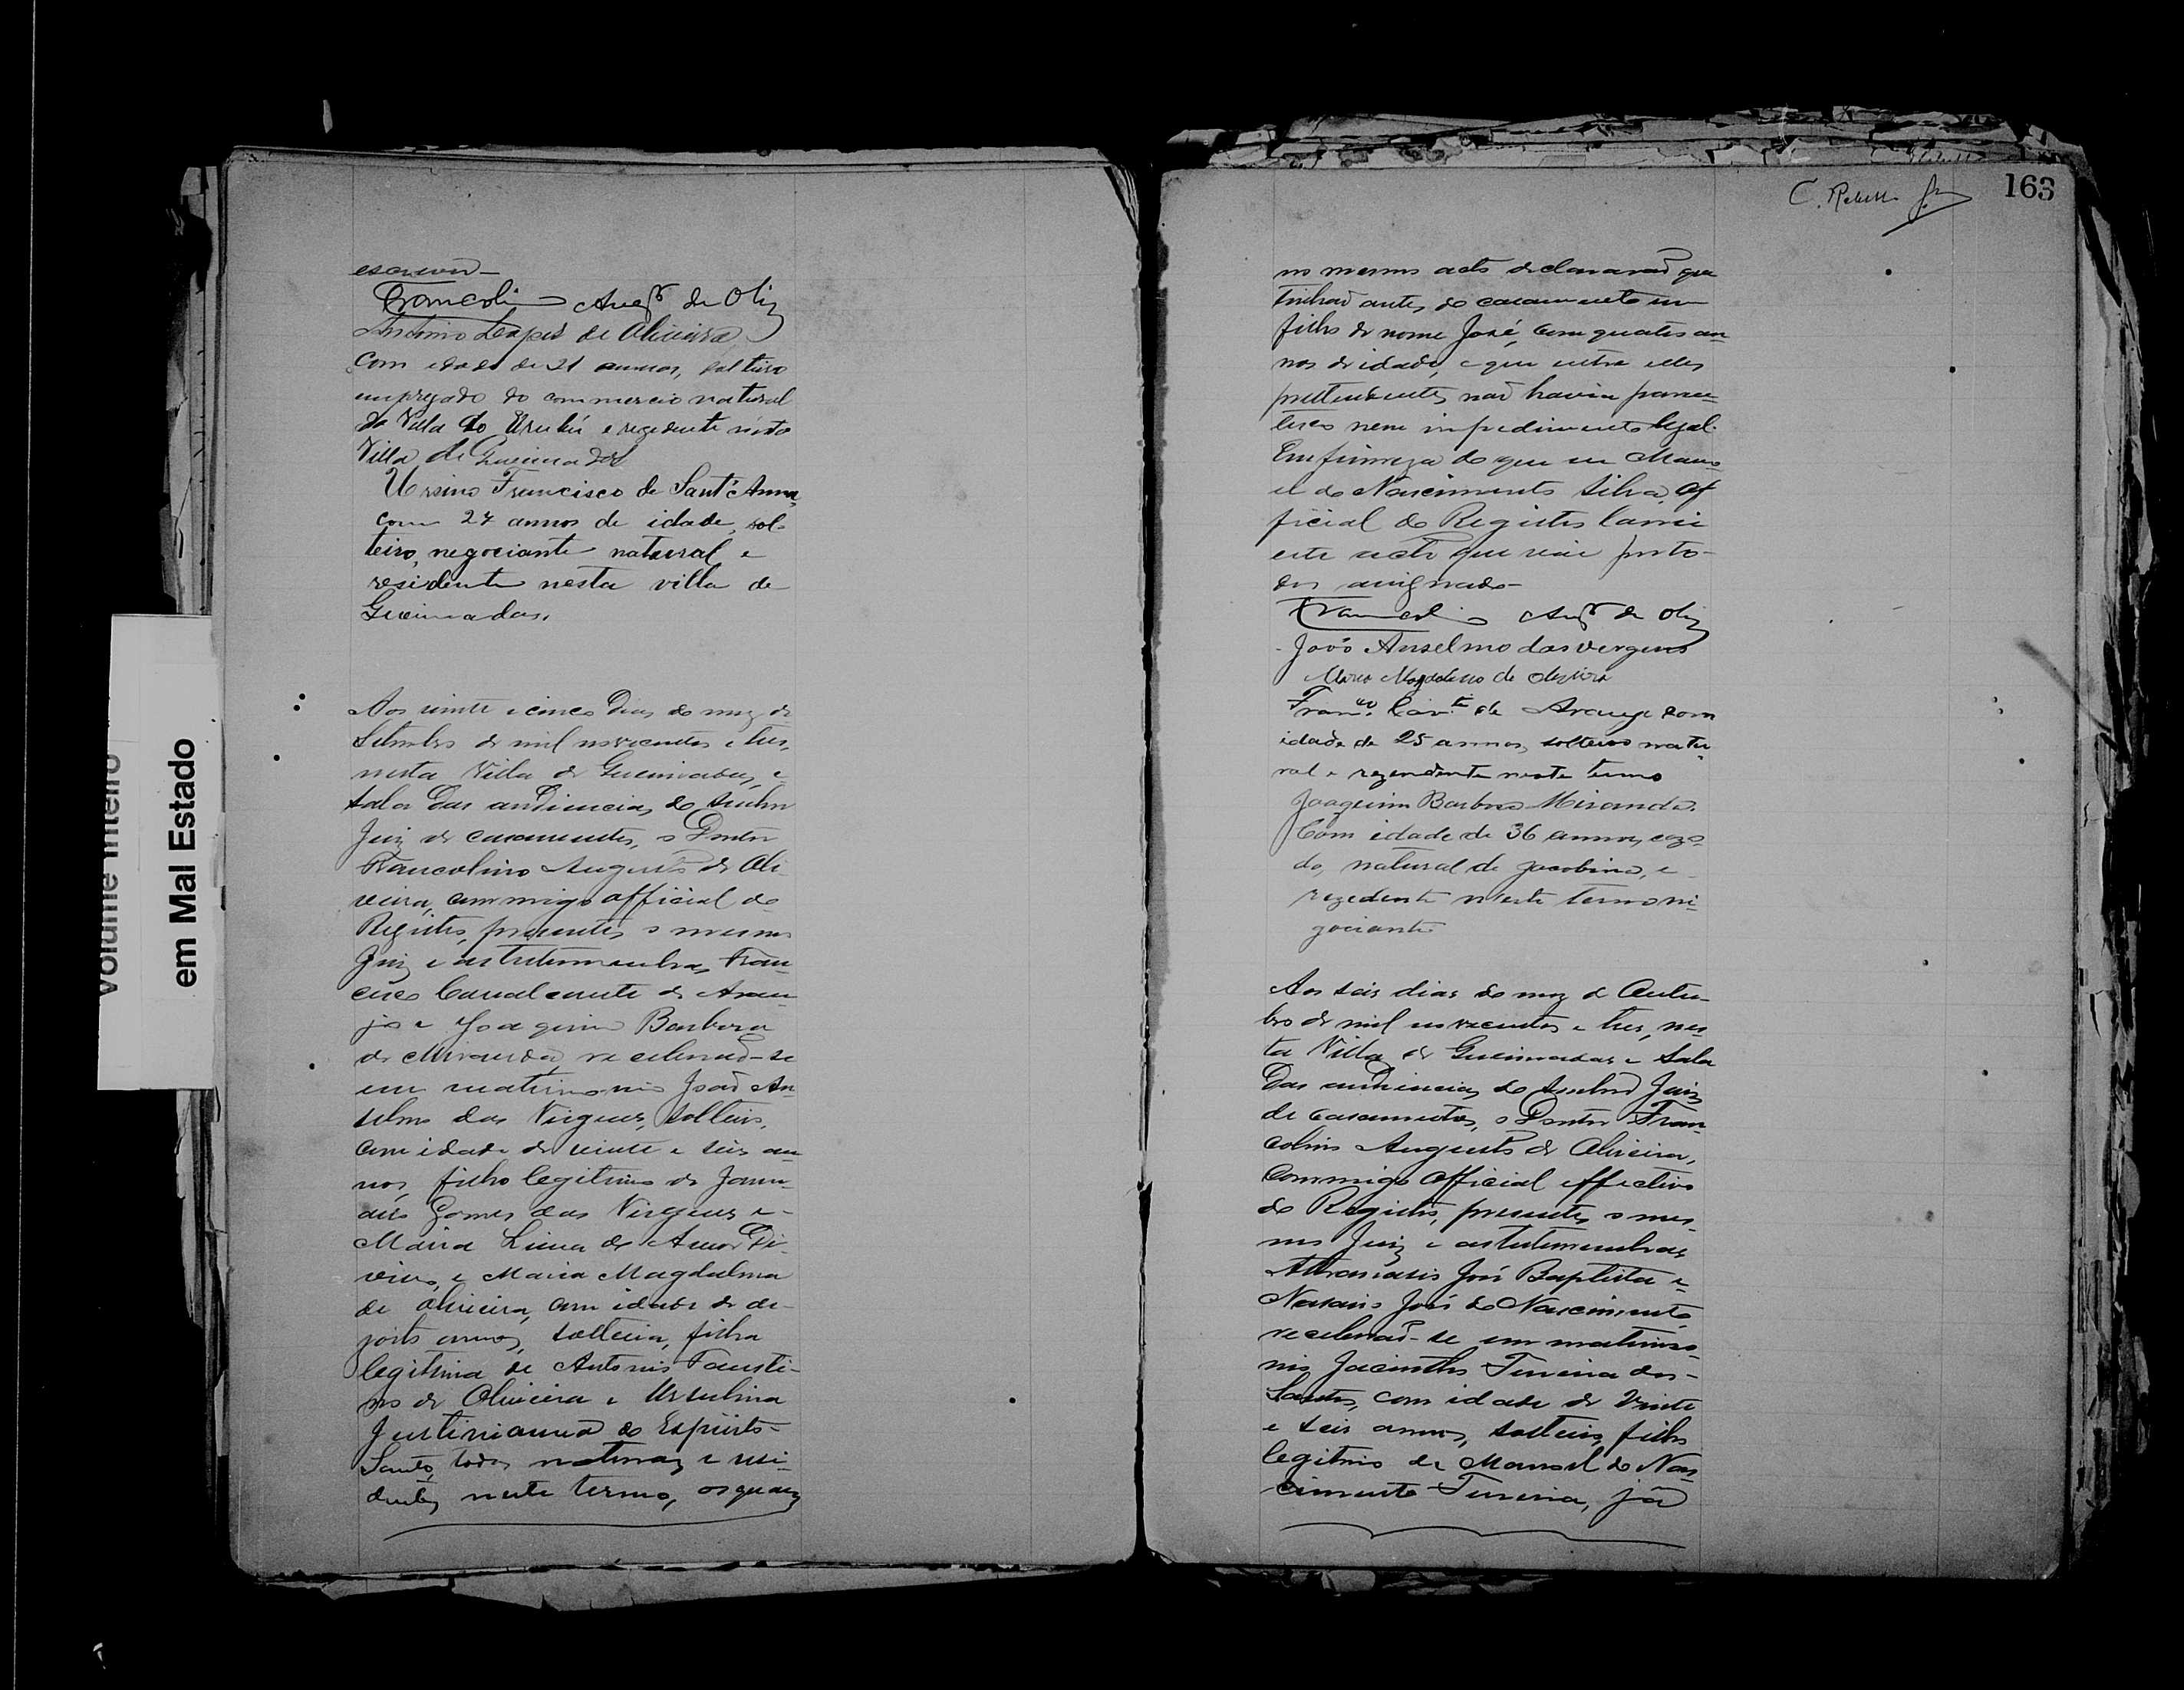 volume inteiro
em Mal Estado
escrevi-
Francolino Augto de Olivra
Antonio Lopes de Oliveira
com edade de 21 annos, solteiro
empregado do commercio natural
da Villa do Urubú e rezedente nesta
Villa de Queimadas
Ursino Francisco de Sant'Anna,
com 24 annos de idade, sol-
teiro, negociante natural e
residente nesta villa de
Queimadas.
Aos vinte e cinco dias do mez de
Setembro de mil novecentos e tres,
nesta Villa de Queimadas, e
sala das audiencias do Senhor
Juiz de casamentos, o Doutor
Francolino Augusto de Oli-
veira, commigo official do
Registro, presentes o mesmo
Juiz e as testemunhas Fran-
cisco Cavalcante de Arau-
jo e Joaquim Barbosa
de Miranda, receberaõ-se
em matrimonio Joaõ An-
selmo das Virgens, solteiro,
com idade de vinte e seis an-
nos, filho legitimo de Janu-
ario Gomes das Virgens e
Maria Lima do Amor Di-
vino, e Maria Magdalena
de Oliveira, com idade de de-
zoito annos, solteira, filha
legitima de Antonio Fausti-
no de Oliveira e Ursulina
Justinianna do Espirito-
Santo, todos naturaes e resi-
dentes neste termo, os quaes
C. Rebello Jr
163
no mesmo acto declararaõ que
tinhaõ antes do casamento um
filho de nome José, com quatro an-
nos de idade, e que entre elles
pretendentes naõ havia paren-
tesco nem impedimento legal.
Em firmeza do que eu Mano-
el do Nascimento Silva, Of-
ficial do Registro lavrei
este acto que vai por to-
dos assignado-
Francolino Augto de Olivra
João Anselmo das Vergens
Maria Magdalena de Oliveira
Franco Cavte de Araujo com
idade de 25 annos, solteiro natu-
ral e rezendente neste termo
Joaquim Barbosa Miranda.
Com idade de 36 annos, caza-
do, natural de Jacobina, e
rezedente neste termo ni-
gociante
Aos seis dias do mez de Outu-
bro de mil novecentos e tres, nes-
ta Villa de Queimadas e Sala
das audiencias do Senhor Juiz
de casamentos, o Doutor Fran-
colino Augusto de Oliveira,
commigo Official effectivo
do Registro, presentes o mes-
mo Juiz e as testemunhas
Athanasio José Baptista e
José do Nascimento
receberaõ-se em matrimo-
nio Jacintho Ferreira dos-
Santos, com idade de vinte
e seis annos, solteiro, filho
legitimo de Manoel do Nas-
cimento Ferreira, já